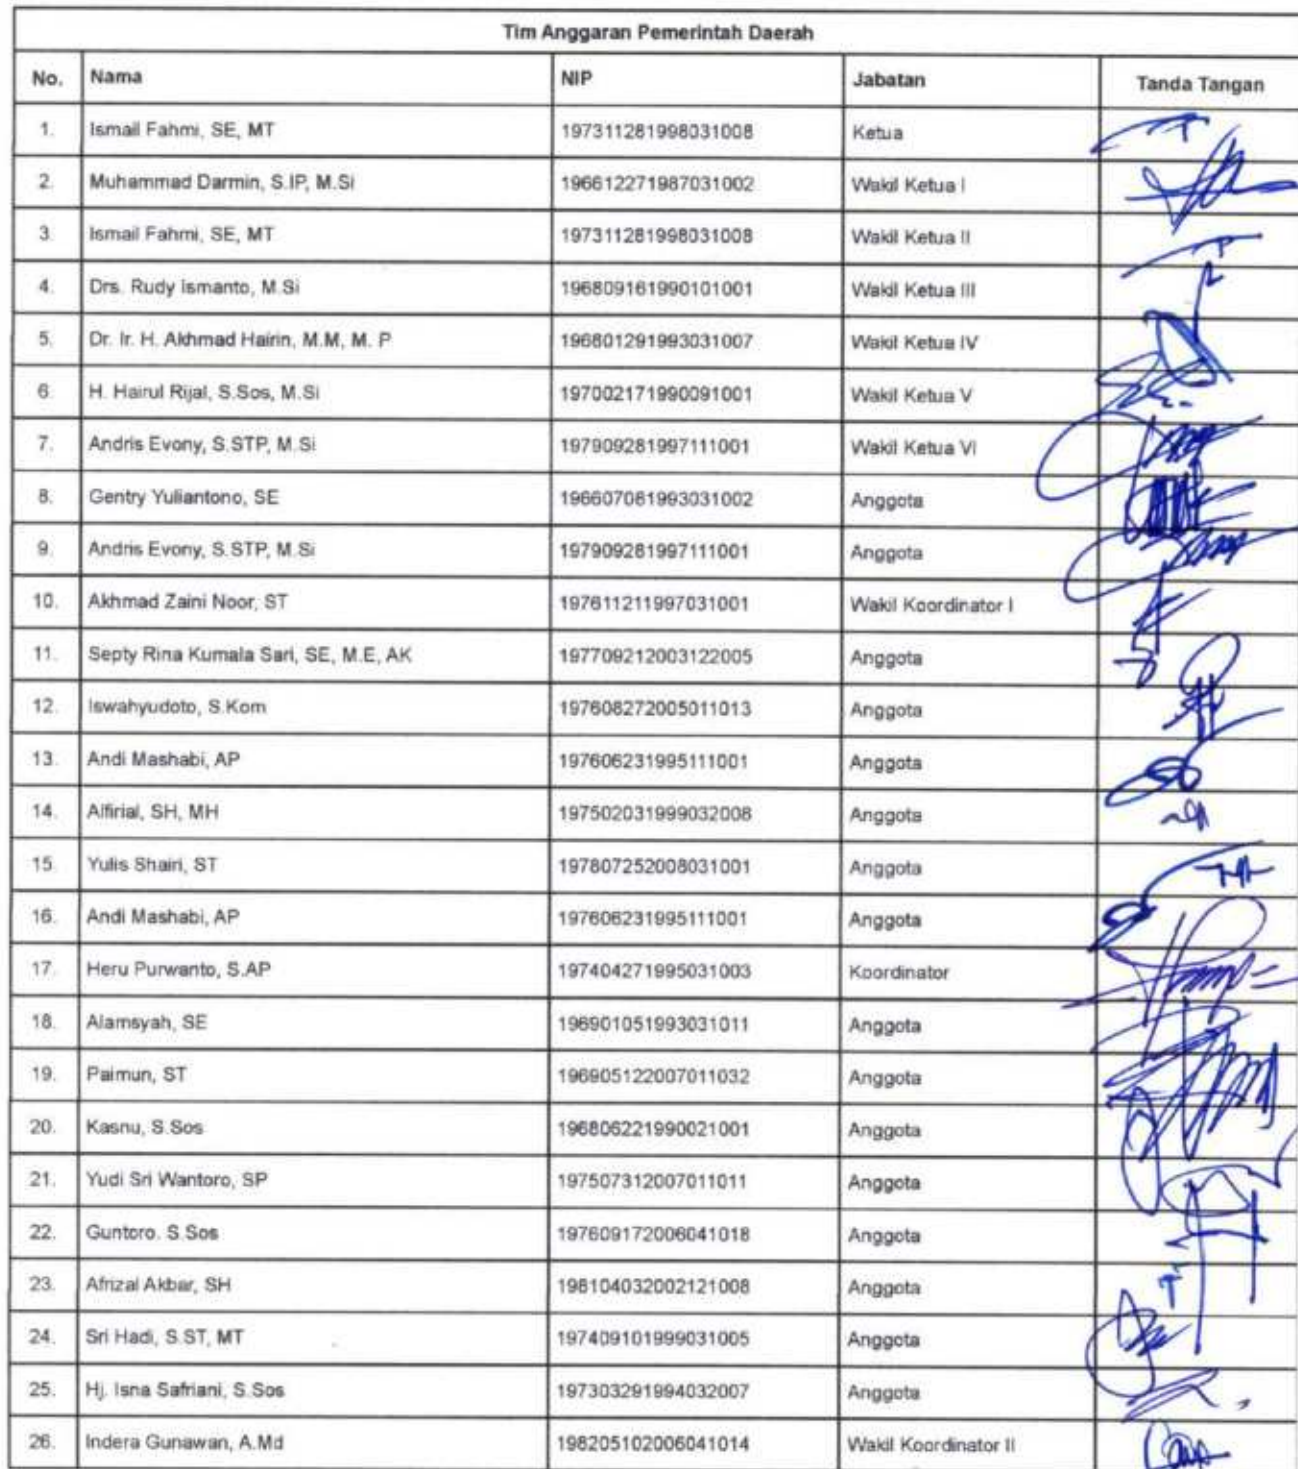 Tim Anggaran Pemerintah Daerah
No. Nama NIP Jabatan Tanda Tangan
1. Ismail Fahmi, SE, MT 197311281998031008 Ketua
2. Muhammad Darmin, S.IP, M.Si 196612271987031002 Wakil Ketua I
3. Ismail Fahmi, SE, MT 197311281998031008 Wakil Ketua II
4. Drs. Rudy Ismanto, M.Si 196809161990101001 Wakil Ketua III
5. Dr. Ir. H. Akhmad Hairin, M.M, M. P 196801291993031007 Wakil Ketua IV
6. H. Hairul Rijal, S.Sos, M.Si 197002171990091001 Wakil Ketua V
7. Andris Evony, S.STP, M.Si 197909281997111001 Wakil Ketua VI
8. Gentry Yuliantono, SE 196607061993031002 Anggota
9. Andris Evony, S.STP, M.Si 197909281997111001 Anggota
10. Akhmad Zaini Noor, ST 197611211997031001 Wakil Koordinator I
11. Septy Rina Kumala Sari, SE, M.E, AK 197709212003122005 Anggota
12. Iswahyudoto, S.Kom 197608272005011013 Anggota
13. Andi Mashabi, AP 197606231995111001 Anggota
14. Alfirial, SH, MH 197502031999032008 Anggota
15. Yulis Shairi, ST 197807252008031001 Anggota
16. Andi Mashabi, AP 197606231995111001 Anggota
17. Heru Purwanto, S.AP 197404271995031003 Koordinator
18. Alamsyah, SE 196901051993031011 Anggota
19. Paimun, ST 196905122007011032 Anggota
20. Kasnu, S.Sos 196806221990021001 Anggota
21. Yudi Sri Wantoro, SP 197507312007011011 Anggota
22. Guntoro. S.Sos 197609172006041018 Anggota
23. Afrizal Akbar, SH 198104032002121008 Anggota
24. Sri Hadi, S.ST, MT 197409101999031005 Anggota
25. Hj. Isna Safriani, S.Sos 197303291994032007 Anggota
26. Indera Gunawan, A.Md 198205102006041014 Wakil Koordinator II